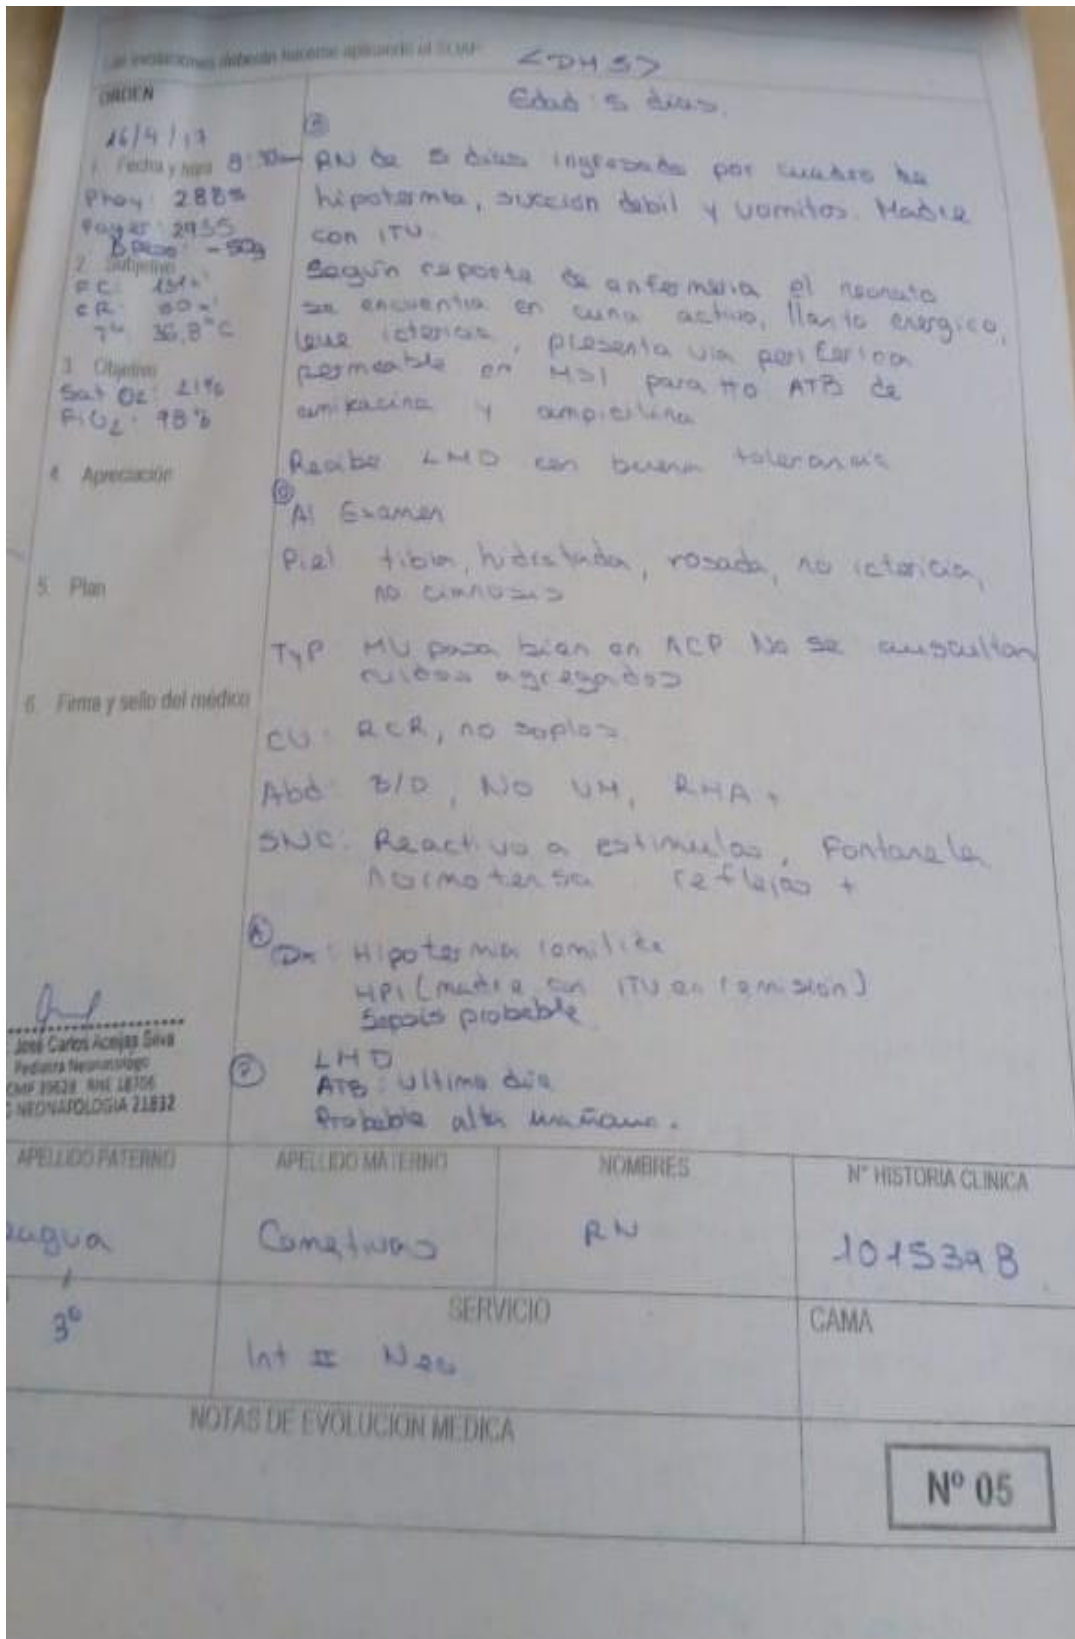 Las evoluciones deberán hacerse aplicando el SOAP
<DH5>
Edad: 5 dias.
ORDEN
16/4/17
1. Fecha y hora 8:30am
Phoy: 2885
Payer: 2955
2. Subjetivo
FC:
T°: 36,8°C
3. Objetivo
Sat O2: 21%
FiO2: 98%
4. Apreciación
5. Plan
6. Firma y sello del médico
RN de 5 dias ingresado por cuadro de
hipotermia, succión debil y vomitos. Madre
con ITU.
Según reporte de enfermeria el neonato
se encuentra en cuna activo, llanto energico,
leve ictericia, presenta via periferica
permeable en MSI para tto ATB de
amikacina y ampicilina
Recibe LMD con buena tolerancia
Al Examen
Piel tibia, hidratada, rosada, no ictericia,
no cianosis
TyP: MV pasa bien en ACP No se auscultan
ruidos agregados
CV: RCR, no soplos.
Abd: B/D, No VM, RHA +
SNC: Reactivo a estimulos, Fontanela
normotensa reflejos +
A
Dx: Hipotermia
HPI (madre con ITU en remisión)
Sepsis probable
P
LMD
ATB: ultimo dia
Probable alta mañana.
José Carlos Acejas Silva
Pediatra Neonatólogo
NEONATOLOGIA 21832
APELLIDO PATERNO
APELLIDO MATERNO
NOMBRES
N° HISTORIA CLINICA
RN
1015398
3°
SERVICIO
Int II Neo
CAMA
NOTAS DE EVOLUCION MEDICA
Nº 05